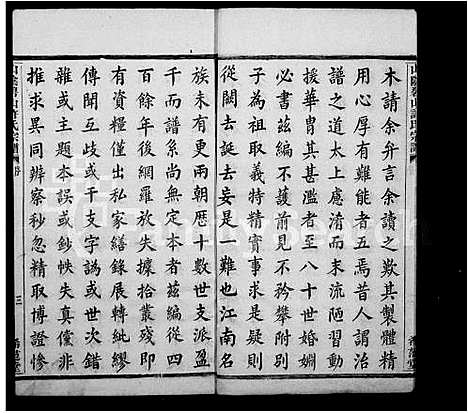 木請余弁言余讀之歎其製體精
用心厚有難能者五焉昔人謂治
譜之道太上慮淆而末流陋習動
援華冑其甚濫者至八十世婚姻
必書茲編不護前見不矜攀附別
子為祖取義特精實事求是疑則
從闕去誕去妄是一難也江南名
族未有更兩朝歷十數世支派盈
千而系譜尚無定本者茲編從四
百年後網羅放失據拾叢殘即
有資糧僅出私家繕錄展轉紕繆
傳聞互歧或干支字譌或世次錯
雜或主題本誤或鈔帙失真僅非
推求異同辨察秒忽精取博證慘
山陰碧山許氏宗譜
三